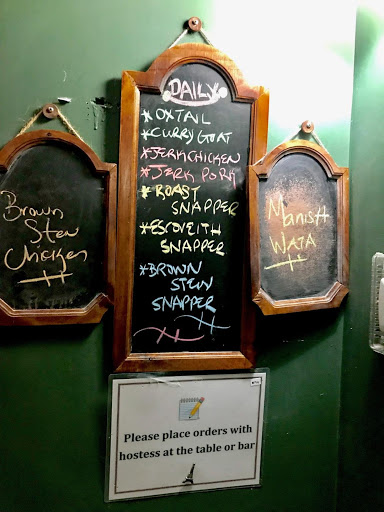 Brown
Stew
Chicken
DAILY
*OXTAIL
*CURRY GOAT
*JERK CHICKEN
*JERK PORK
*ROAST
SNAPPER
*ESCOVEITH
SNAPPER
*BROWN
STEW
SNAPPER
Manish
WATA
Please place orders with
hostess at the table or bar